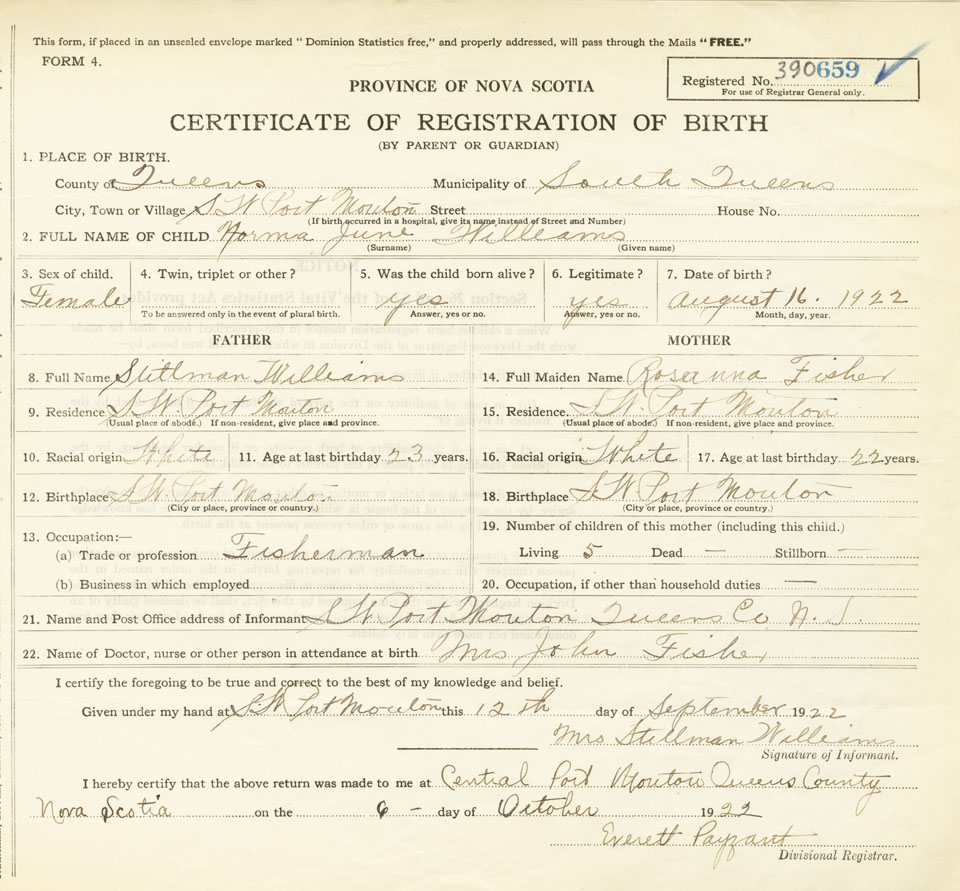 This form, if placed in an unsealed envelope marked "Dominion Statistics free," and properly addressed, will pass through the Mails "FREE."
FORM 4.
Registered No. 390659
For use of Registrar General only.
PROVINCE OF NOVA SCOTIA
CERTIFICATE OF REGISTRATION OF BIRTH
(BY PARENT OR GUARDIAN)
1. PLACE OF BIRTH.
County of Queens Municipality of South Queens
City, Town or Village S W Port Mouton Street House No.
(If birth occurred in a hospital, give its name instead of Street and Number)
2. FULL NAME OF CHILD Norma June Williams
(Surname) (Given name)
3. Sex of child. 4. Twin, triplet or other? 5. Was the child born alive? 6. Legitimate? 7. Date of birth?
Female yes yes August 16. 1922
To be answered only in the event of plural birth. Answer, yes or no. Answer, yes or no. Month, day, year.
FATHER MOTHER
8. Full Name Stillman Williams 14. Full Maiden Name Roseanna Fisher
9. Residence S.W. Port Mouton 15. Residence. S.W. Port Mouton
(Usual place of abode.) If non-resident, give place and province. (Usual place of abode.) If non-resident, give place and province.
10. Racial origin White 11. Age at last birthday 23 years. 16. Racial origin White 17. Age at last birthday 22 years.
12. Birthplace S.W. Port Mouton 18. Birthplace S.W. Port Mouton
(City or place, province or country.) (City or place, province or country.)
19. Number of children of this mother (including this child.)
13. Occupation:—
(a) Trade or profession Fisherman Living 5 Dead — Stillborn —
(b) Business in which employed 20. Occupation, if other than household duties —
21. Name and Post Office address of Informant S W Port Mouton Queens Co. N. S.
22. Name of Doctor, nurse or other person in attendance at birth Mrs John Fisher
I certify the foregoing to be true and correct to the best of my knowledge and belief.
Given under my hand at S.W. Port Mouton this 12th day of September 1922
Mrs Stillman Williams
Signature of Informant.
I hereby certify that the above return was made to me at Central Port Mouton Queens County
Nova Scotia on the 6 - day of October 1922
Everett Payzant
Divisional Registrar.